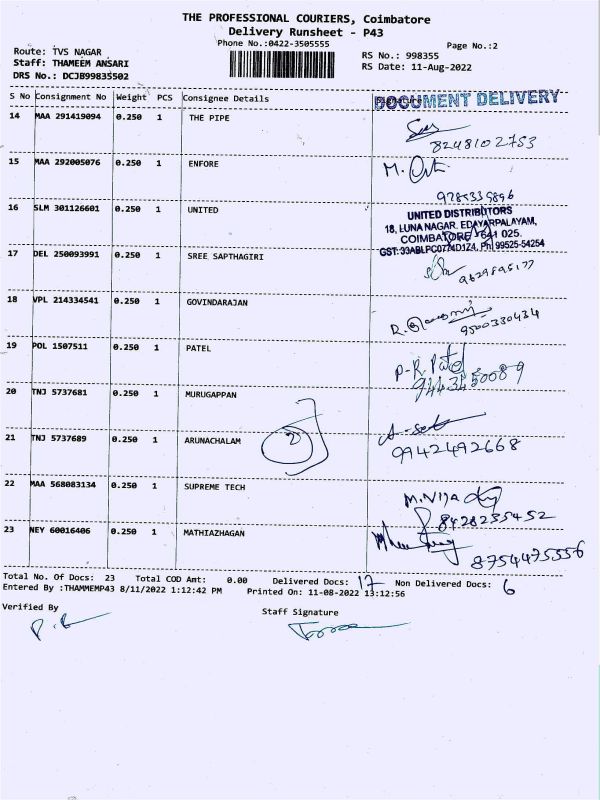 THE PROFESSIONAL COURIERS, Coimbatore
Delivery Runsheet - P43
Phone No.:0422-3505555
Page No.:2
Route: TVS NAGAR
Staff: THAMEEM ANSARI
DRS No.: DCJB99835502
RS No.: 998355
RS Date: 11-Aug-2022
S No Consignment No Weight PCS Consignee Details
DOCUMENT DELIVERY
14 MAA 291419094 0.250 1 THE PIPE
8248102753
15 MAA 292005076 0.250 1 ENFORE
M.
16 SLM 301126601 0.250 1 UNITED
UNITED DISTRIBUTORS
18, LUNA NAGAR, EDAYARPALAYAM,
COIMBATORE - 641 025.
GST: Ph: 99525-54254
17 DEL 250093991 0.250 1 SREE SAPTHAGIRI
18 VPL 214334541 0.250 1 GOVINDARAJAN
R.
9500330434
19 POL 1507511 0.250 1 PATEL
P-R. Patel
9443450089
20 TNJ 5737681 0.250 1 MURUGAPPAN
21 TNJ 5737689 0.250 1 ARUNACHALAM
2
9942492668
22 MAA 568083134 0.250 1 SUPREME TECH
M.Vijay
8428235452
23 NEY 60016406 0.250 1 MATHIAZHAGAN
8754475556
Total No. Of Docs: 23 Total COD Amt: 0.00 Delivered Docs: 17 Non Delivered Docs: 6
Entered By :THAMMEMP43 8/11/2022 1:12:42 PM Printed On: 11-08-2022 13:12:56
Verified By
Staff Signature